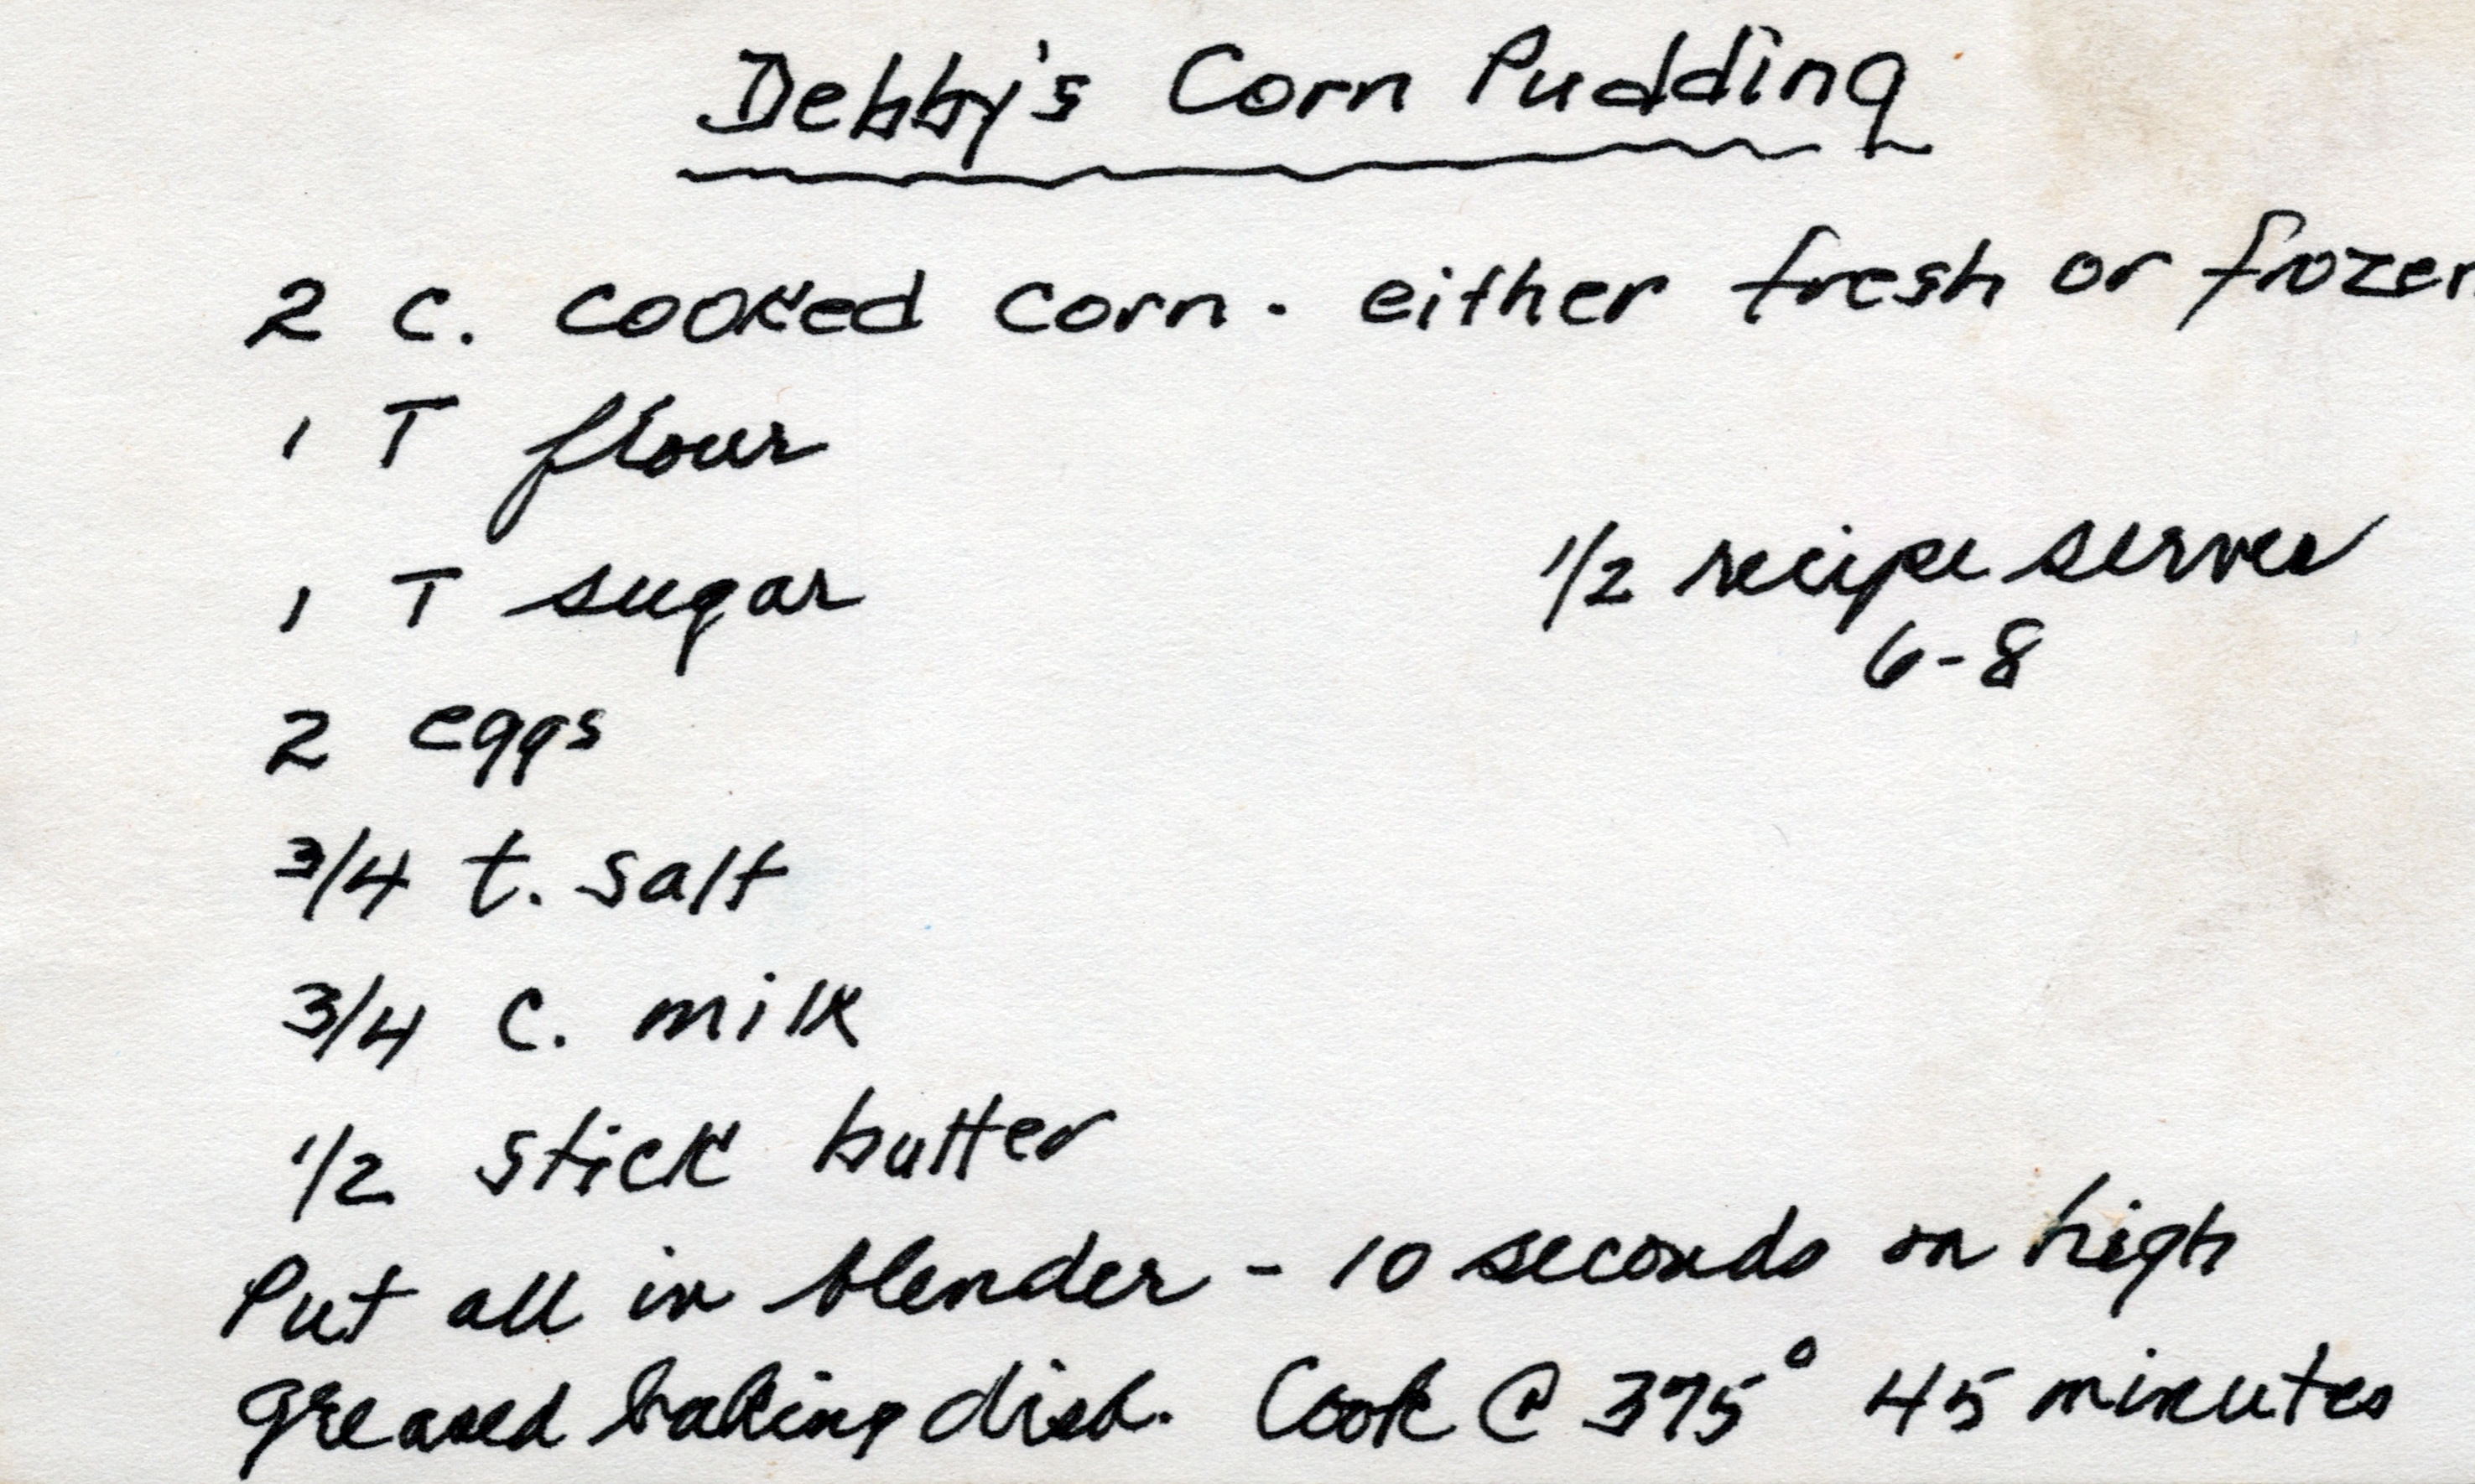 Debby's Corn Pudding
2 C. cooked corn - either fresh or frozen
1 T flour
1 T sugar
1/2 recipe serves
6-8
2 eggs
3/4 t. salt
3/4 C. milk
1/2 stick butter
Put all in blender - 10 seconds on high
greased baking dish. Cook @ 375° 45 minutes